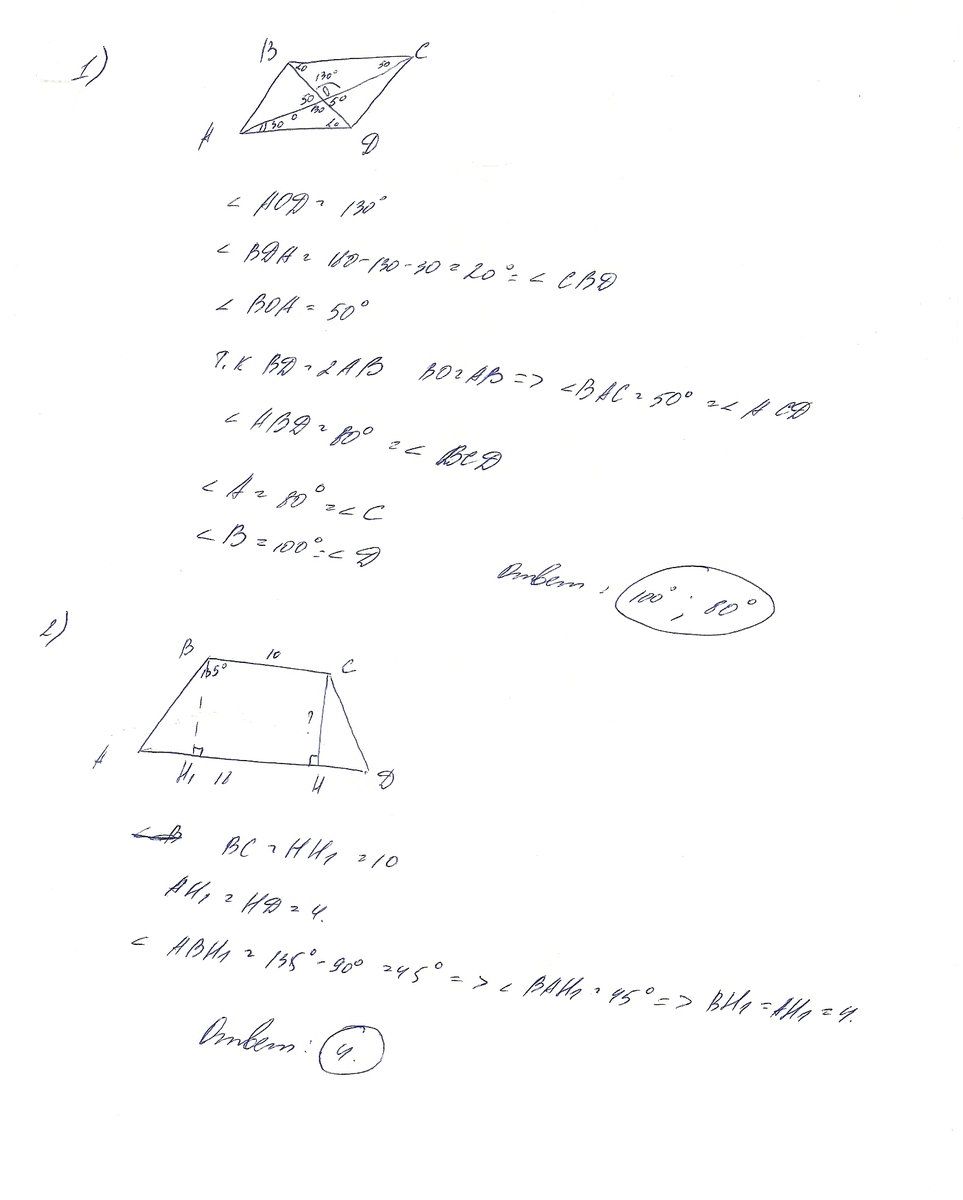 1)
B C
20 130° 30
50 O 50
130
30° 20
A D
∠ AOD = 130°
∠ BDA = 180-130-30 = 20° = ∠ CBD
∠ BOA = 50°
Т.к BD = 2AB BO = AB => ∠BAC = 50° = ∠ ACD
∠ ABD = 80° = ∠ BCD
∠ A = 80° = ∠ C
∠ B = 100° = ∠ D
Ответ: 100°; 80°
2)
B 10 C
135°
?
A H₁ 18 H D
BC = HH₁ = 10
AH₁ = HD = 4.
∠ ABH₁ = 135° - 90° = 45° => ∠ BAH₁ = 45° => BH₁ = AH₁ = 4.
Ответ: 4.